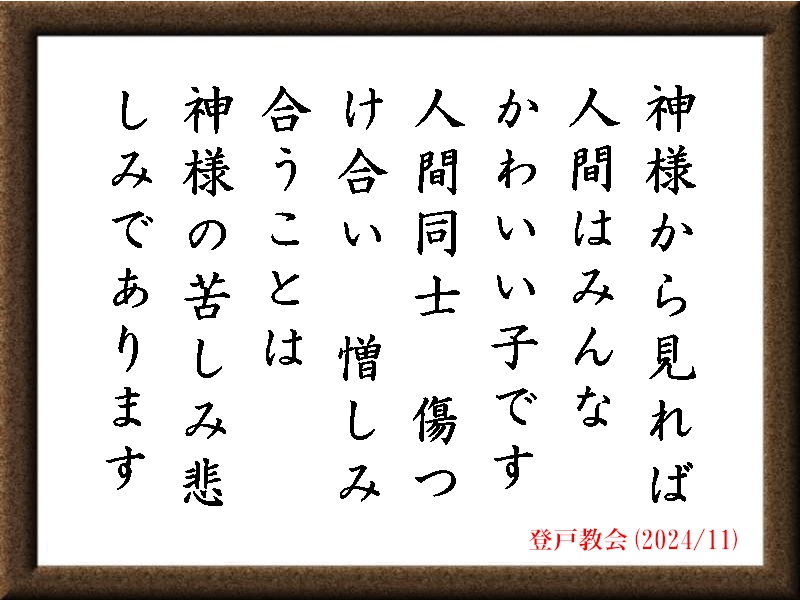 神様から見れば
人間はみんな
かわいい子です
人間同士　傷つ
け合い　憎しみ
合うことは
神様の苦しみ悲
しみであります
登戸教会(2024/11)